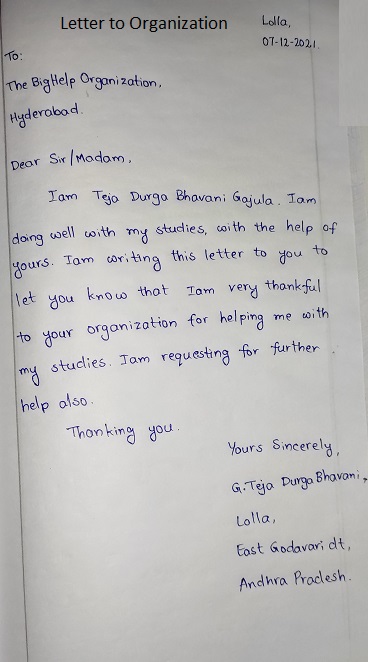 Letter to Organization
Lolla,
07-12-2021.
To:
The BigHelp Organization,
Hyderabad.
Dear Sir/Madam,
Iam Teja Durga Bhavani Gajula. Iam
doing well with my studies, with the help of
yours. Iam writing this letter to you to
let you know that Iam very thankful
to your organization for helping me with
my studies. Iam requesting for further
help also.
Thanking you.
Yours Sincerely,
G.Teja Durga Bhavani,
Lolla,
East Godavari dt,
Andhra Pradesh.